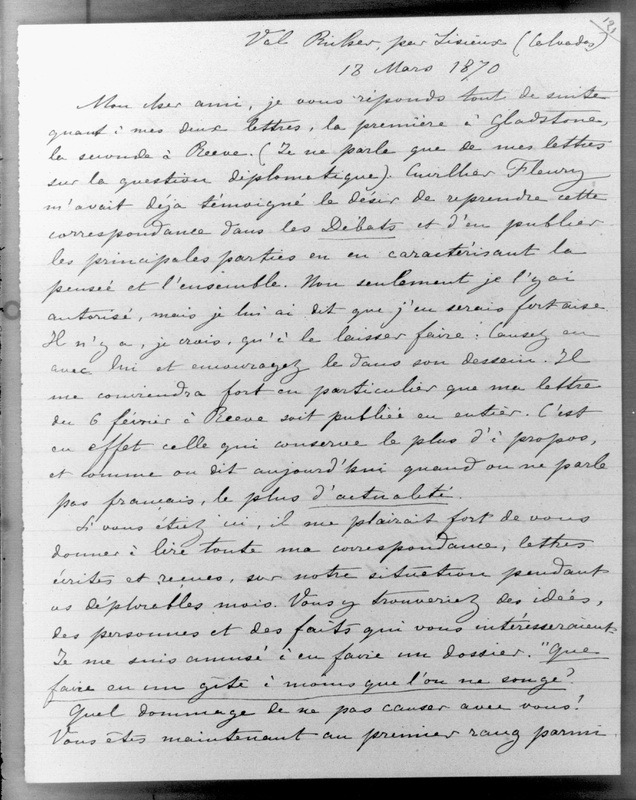 121
Val Richer par Lisieux (Calvados)
13 Mars 1870
Mon cher ami, je vous réponds tout de suite
quant à mes deux lettres, la première à Gladstone,
la seconde à Reeve. (Je ne parle que de mes lettres
sur la question diplomatique). Cuvillier Fleury
m'avait déja témoigné le désir de reprendre cette
correspondance dans les Débats et d'en publier
les principales parties en en caractérisant la
pensée et l'ensemble. Non seulement je l'y ai
autorisé, mais je lui ai dit que j'en serais fort aise.
Il n'y a, je crois, qu'à le laisser faire. Causez en
avec lui et encouragez le dans son dessein. Il
me conviendra fort en particulier que ma lettre
du 6 février à Reeve soit publiée en entier. C'est
en effet celle qui conserve le plus d'à propos,
et comme on dit aujourd'hui quand on ne parle
pas français, le plus d'actualité.
Si vous étiez ici, il me plairait fort de vous
donner à lire toute ma correspondance, lettres
écrites et reçues, sur notre situation pendant
ces déplorables mois. Vous y trouveriez des idées,
des personnes et des faits qui vous intéresseraient.
Je me suis amusé à en faire un dossier. "Que
faire en un gîte à moins que l'on ne songe?
Quel dommage de ne pas causer avec vous!
Vous êtes maintenant au premier rang parmi